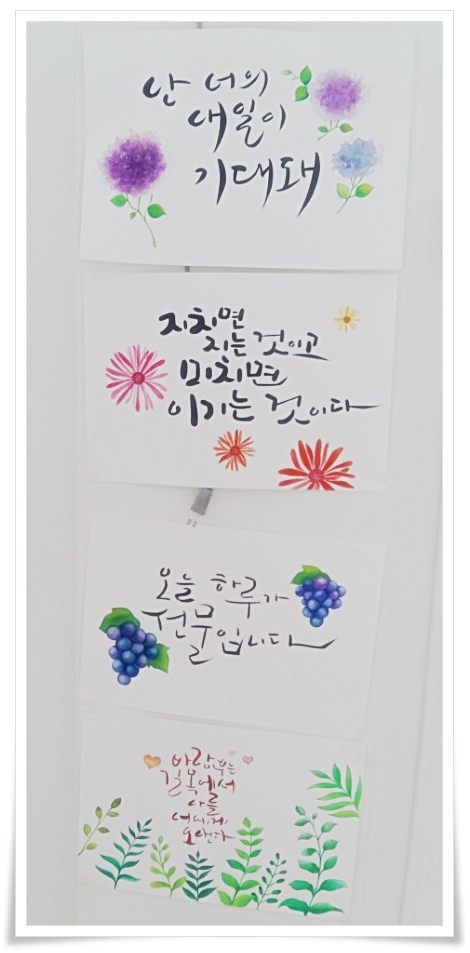 난 너의
내일이
기대돼
지치면
지는 것이고
미치면
이기는 것이다
오늘 하루가
선물입니다
바람부는
길목에서
나를
너에게
보낸다